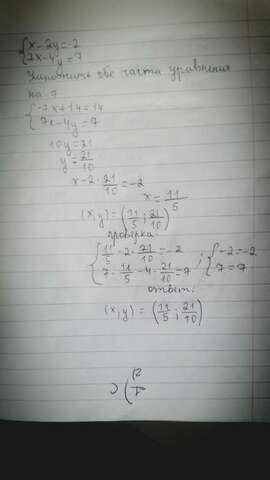 {x-2y=-2
7x-4y=7
Заполнить обе части уравнения
на -7
{-7x+14=14
7x-4y=7
10y=21
y=21/10
x-2·21/10=-2
x=11/5
(x,y)=(11/5;21/10)
проверка:
{11/5-2·21/10=-2
7·11/5-4·21/10=7 ; {-2=-2
7=7
ответ:
(x,y)=(11/5;21/10)